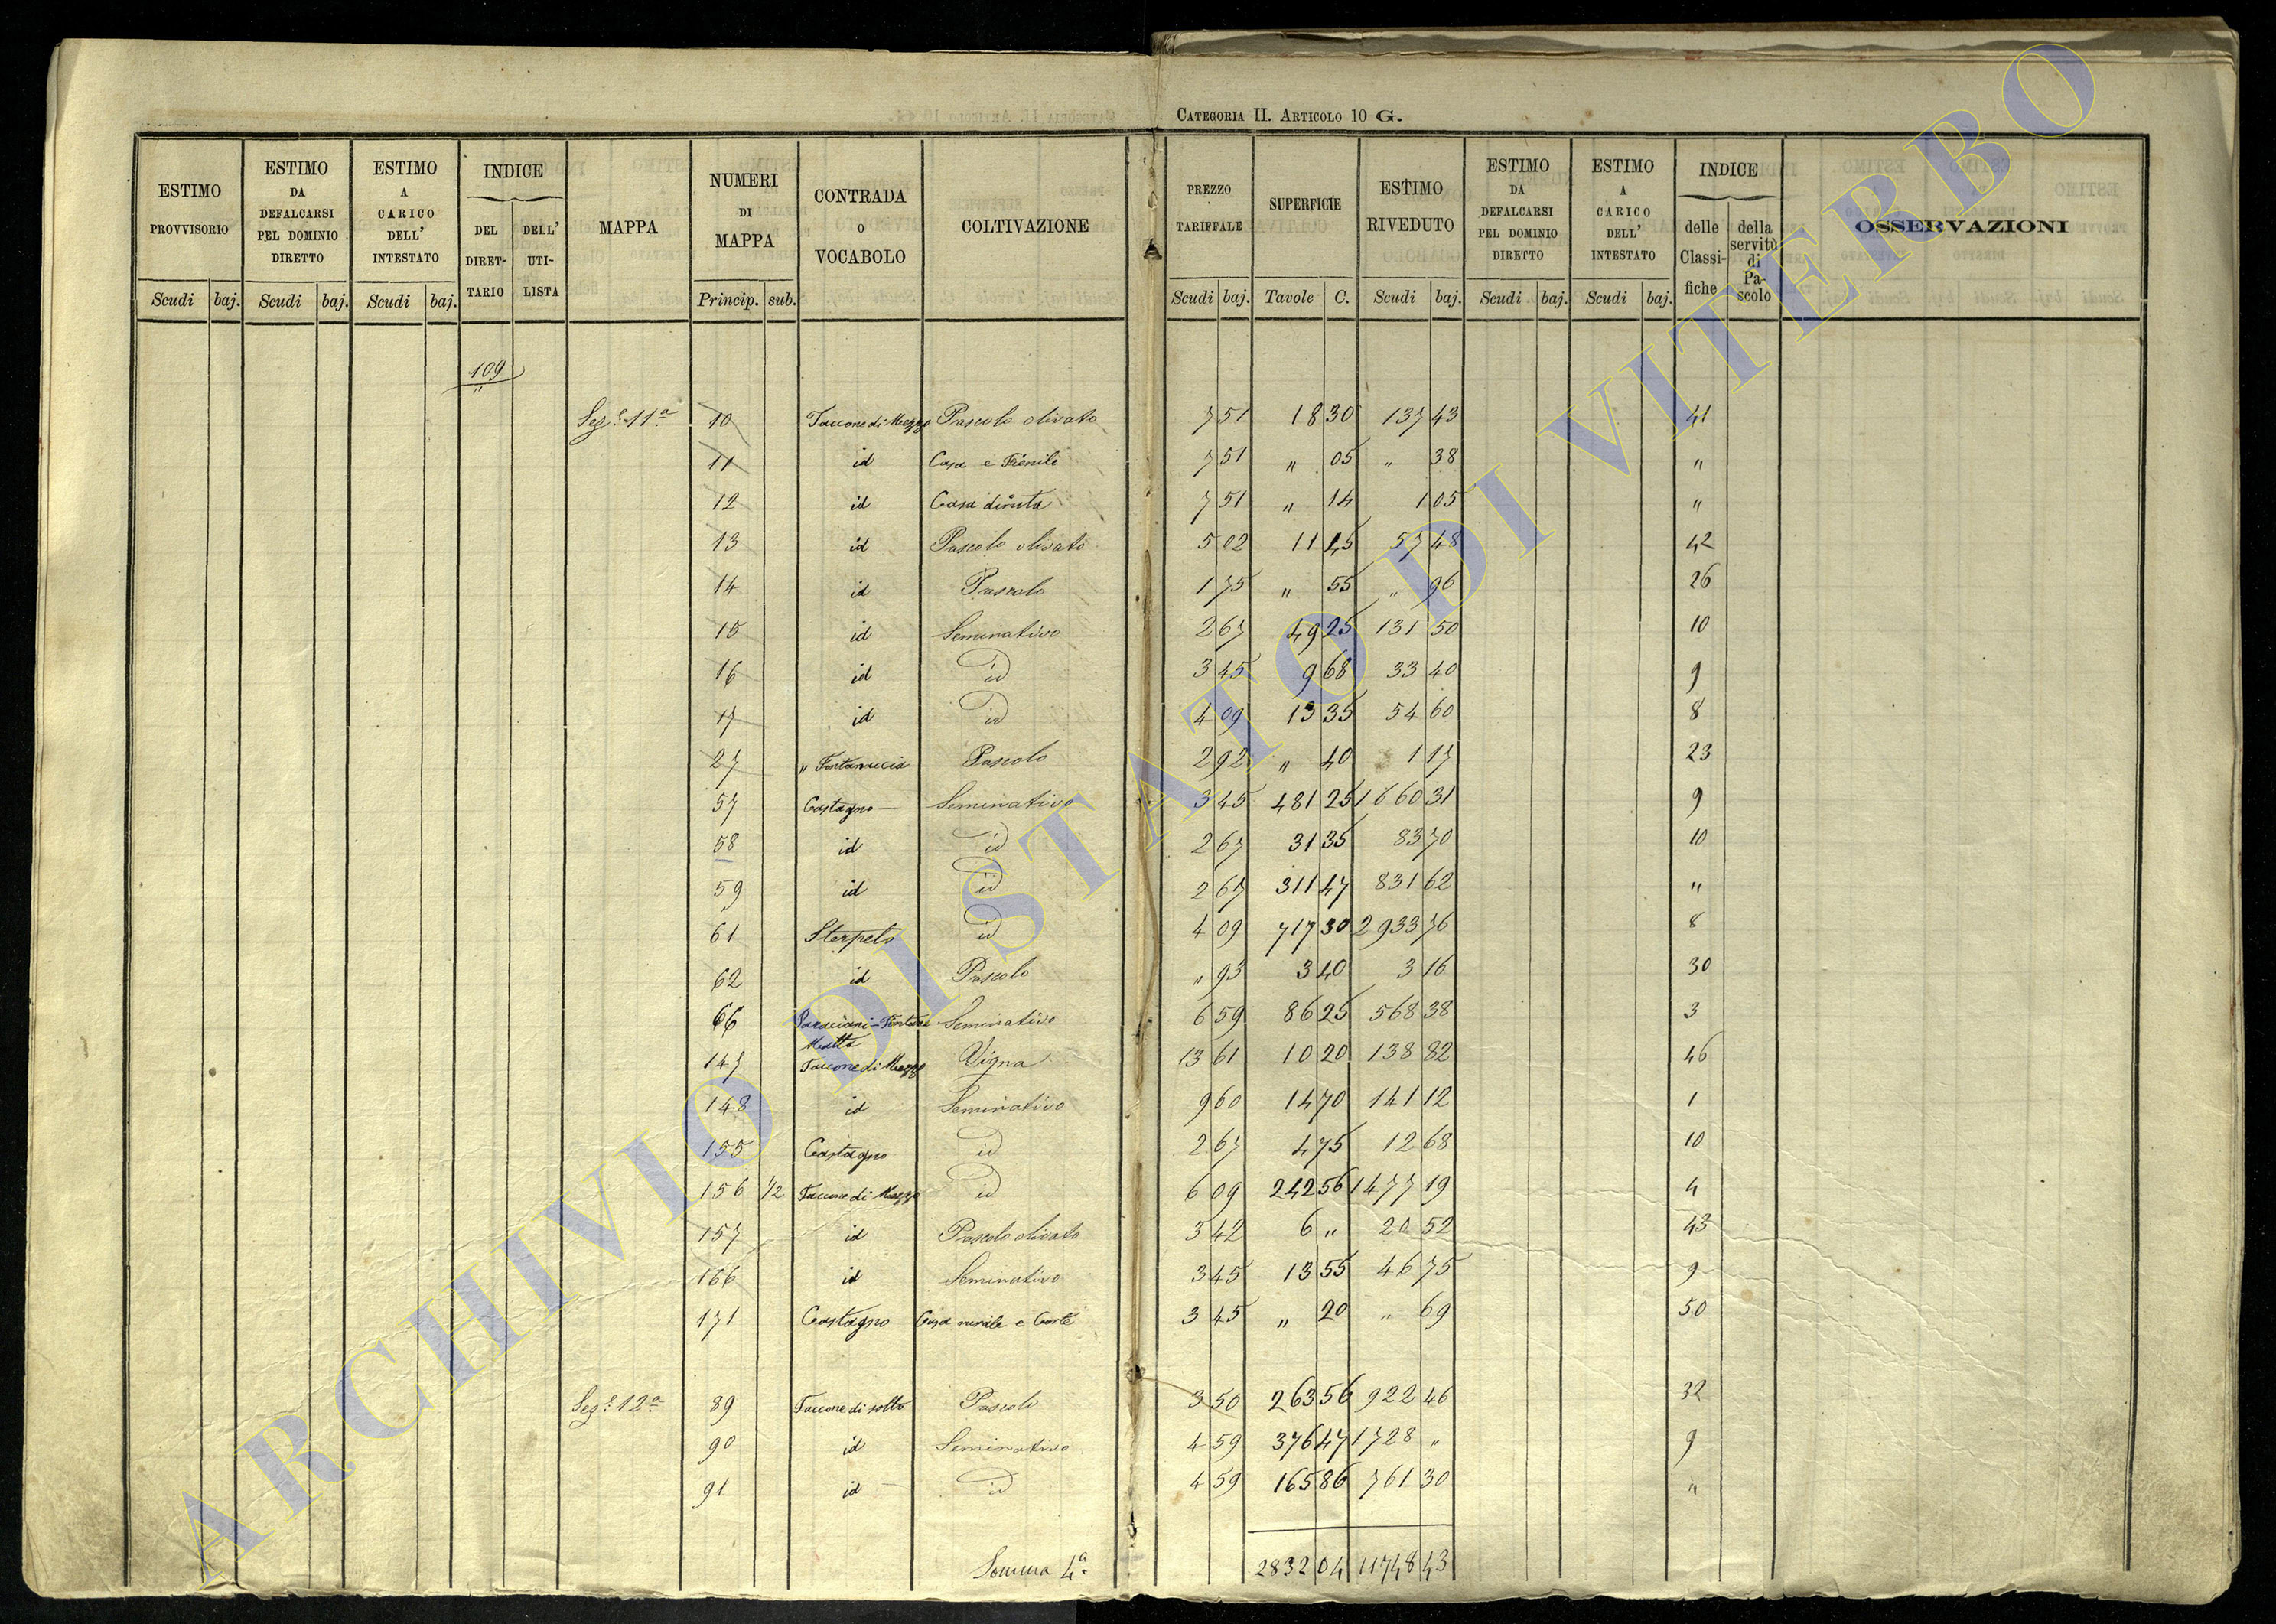 CATEGORIA II. ARTICOLO 10 G.
ESTIMO PROVVISORIO Scudi baj.
ESTIMO DA DEFALCARSI PEL DOMINIO DIRETTO Scudi baj.
ESTIMO A CARICO DELL' INTESTATO Scudi baj.
INDICE DEL DIRET-TARIO DELL' UTI-LISTA
MAPPA
NUMERI DI MAPPA Princip. sub.
CONTRADA o VOCABOLO
COLTIVAZIONE
PREZZO TARIFFALE Scudi baj.
SUPERFICIE Tavole C.
ESTIMO RIVEDUTO Scudi baj.
ESTIMO DA DEFALCARSI PEL DOMINIO DIRETTO Scudi baj.
ESTIMO A CARICO DELL' INTESTATO Scudi baj.
INDICE delle Classi-fiche della servitù di Pa-scolo
OSSERVAZIONI
109
"
Sez.e 11a 10 Taccone di Mezzo Pascolo olivato 7 51 18 30 137 43 41
11 id Casa e Fienile 7 51 " 05 " 38 "
12 id Casa diruta 7 51 " 14 1 05 "
13 id Pascolo olivato 5 02 11 45 57 48 42
14 id Pascolo 1 75 " 55 " 96 26
15 id Seminativo 2 67 49 25 131 50 10
16 id id 3 45 9 68 33 40 9
17 id id 4 09 13 35 54 60 8
27 " Fontanuccia Pascolo 2 92 " 40 1 17 23
57 Castagno Seminativo 3 45 481 25 1660 31 9
58 id id 2 67 31 35 83 70 10
59 id id 2 67 311 47 831 62 "
61 Sterpeto id 4 09 717 30 2933 76 8
62 id Pascolo " 93 3 40 3 16 30
66 Seminativo 6 59 86 25 568 38 3
147 Taccone di Mezzo Vigna 13 61 10 20 138 82 46
148 id Seminativo 9 60 14 70 141 12 1
155 Castagno id 2 67 4 75 12 68 10
156 1/2 Taccone di Mezzo id 6 09 242 56 1477 19 4
157 id Pascolo olivato 3 42 6 " 20 52 43
166 id Seminativo 3 45 13 55 46 75 9
171 Castagno Casa rurale e Corte 3 45 " 20 " 69 50
Sez.e 12a 89 Taccone di sotto Pascolo 3 50 263 56 922 46 32
90 id Seminativo 4 59 376 47 1728 " 9
91 id id 4 59 165 86 761 30 "
Somma 4a 2832 04 11748 43
ARCHIVIO DI STATO DI VITERBO